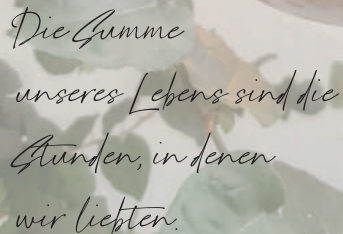 Die Summe
unseres Lebens sind die
Stunden, in denen
wir liebten.